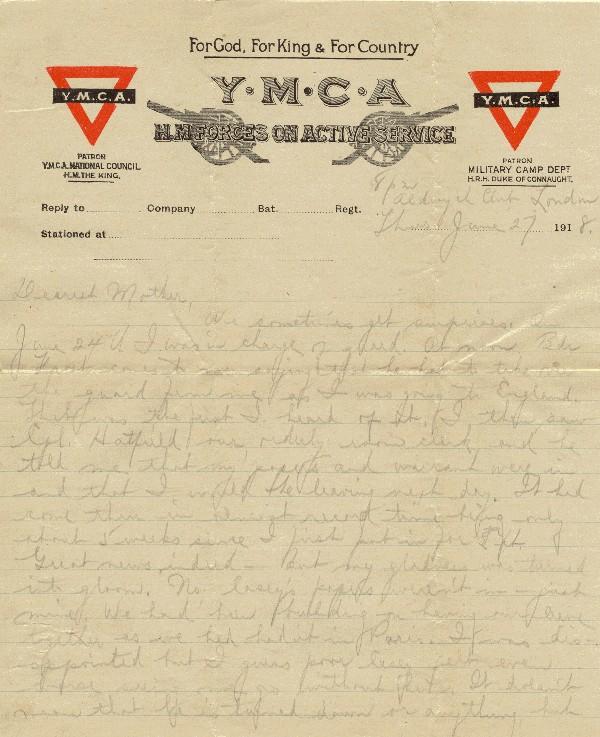 For God, For King & For Country
Y·M·C·A
H.M FORCES ON ACTIVE SERVICE
Y.M.C.A.
PATRON
Y.M.C.A. NATIONAL COUNCIL
H.M. THE KING.
Y.M.C.A.
PATRON
MILITARY CAMP DEPT
H.R.H. DUKE OF CONNAUGHT.
8 pm
Aldwych London
Reply to Company Bat. Regt.
Thurs June 27 1918.
Stationed at
Dearest Mother,
We sometimes get surprises.
June 24th I was in charge of guard. At noon
to me saying that he had to take over
the guard from me as I was going to England.
That was the first I heard of it. I then saw
Cpl. Hatfield our orderly room clerk and he
told me that my papers and warrant were in
and that I would be leaving next day. It had
come thru in almost record time being only
about 5 weeks since I first put in for it.
Great news indeed - but my gladness was turned
into gloom. No Casey's papers weren't in - just
mine. We had been building on having our leave
together as we had had it in Paris. I was dis-
appointed but I guess poor Casey felt even
worse seeing me go without him. It doesn't
mean that he is turned down or anything but